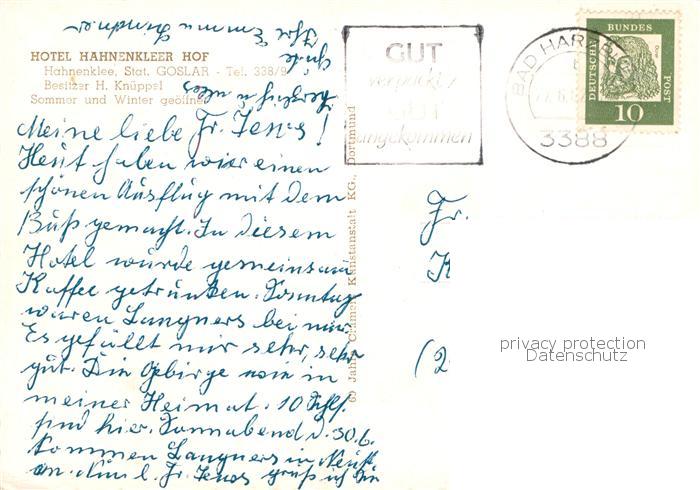 HOTEL HAHNENKLEER HOF
Hahnenklee, Stat. GOSLAR - Tel. 338/9
Besitzer H. Knüppel
Sommer und Winter geöffnet
Meine liebe Fr. Jenss!
Heut haben wir einen
schönen Ausflug mit dem
Buß gemacht. In diesem
Hotel wurde gemeinsam
Kaffee getrunken. Sonntag
waren Langners bei mir.
Es gefällt mir sehr, sehr
gut. Die Gebirge wie in
meiner Heimat. 10 Schls.
sind hier. Sonnabend d. 30.6.
kommen Langners in
an. Nun l. Fr. Jenss grüß ich Sie
herzlich u. alles
gute
Ihre Emma
60 Jahre Cramers Kunstanstalt KG., Dortmund
GUT
verpackt
GUT
angekommen
BAD HARZBURG
3388
DEUTSCHE BUNDESPOST
10
Fr.
K
(2
privacy protection
Datenschutz